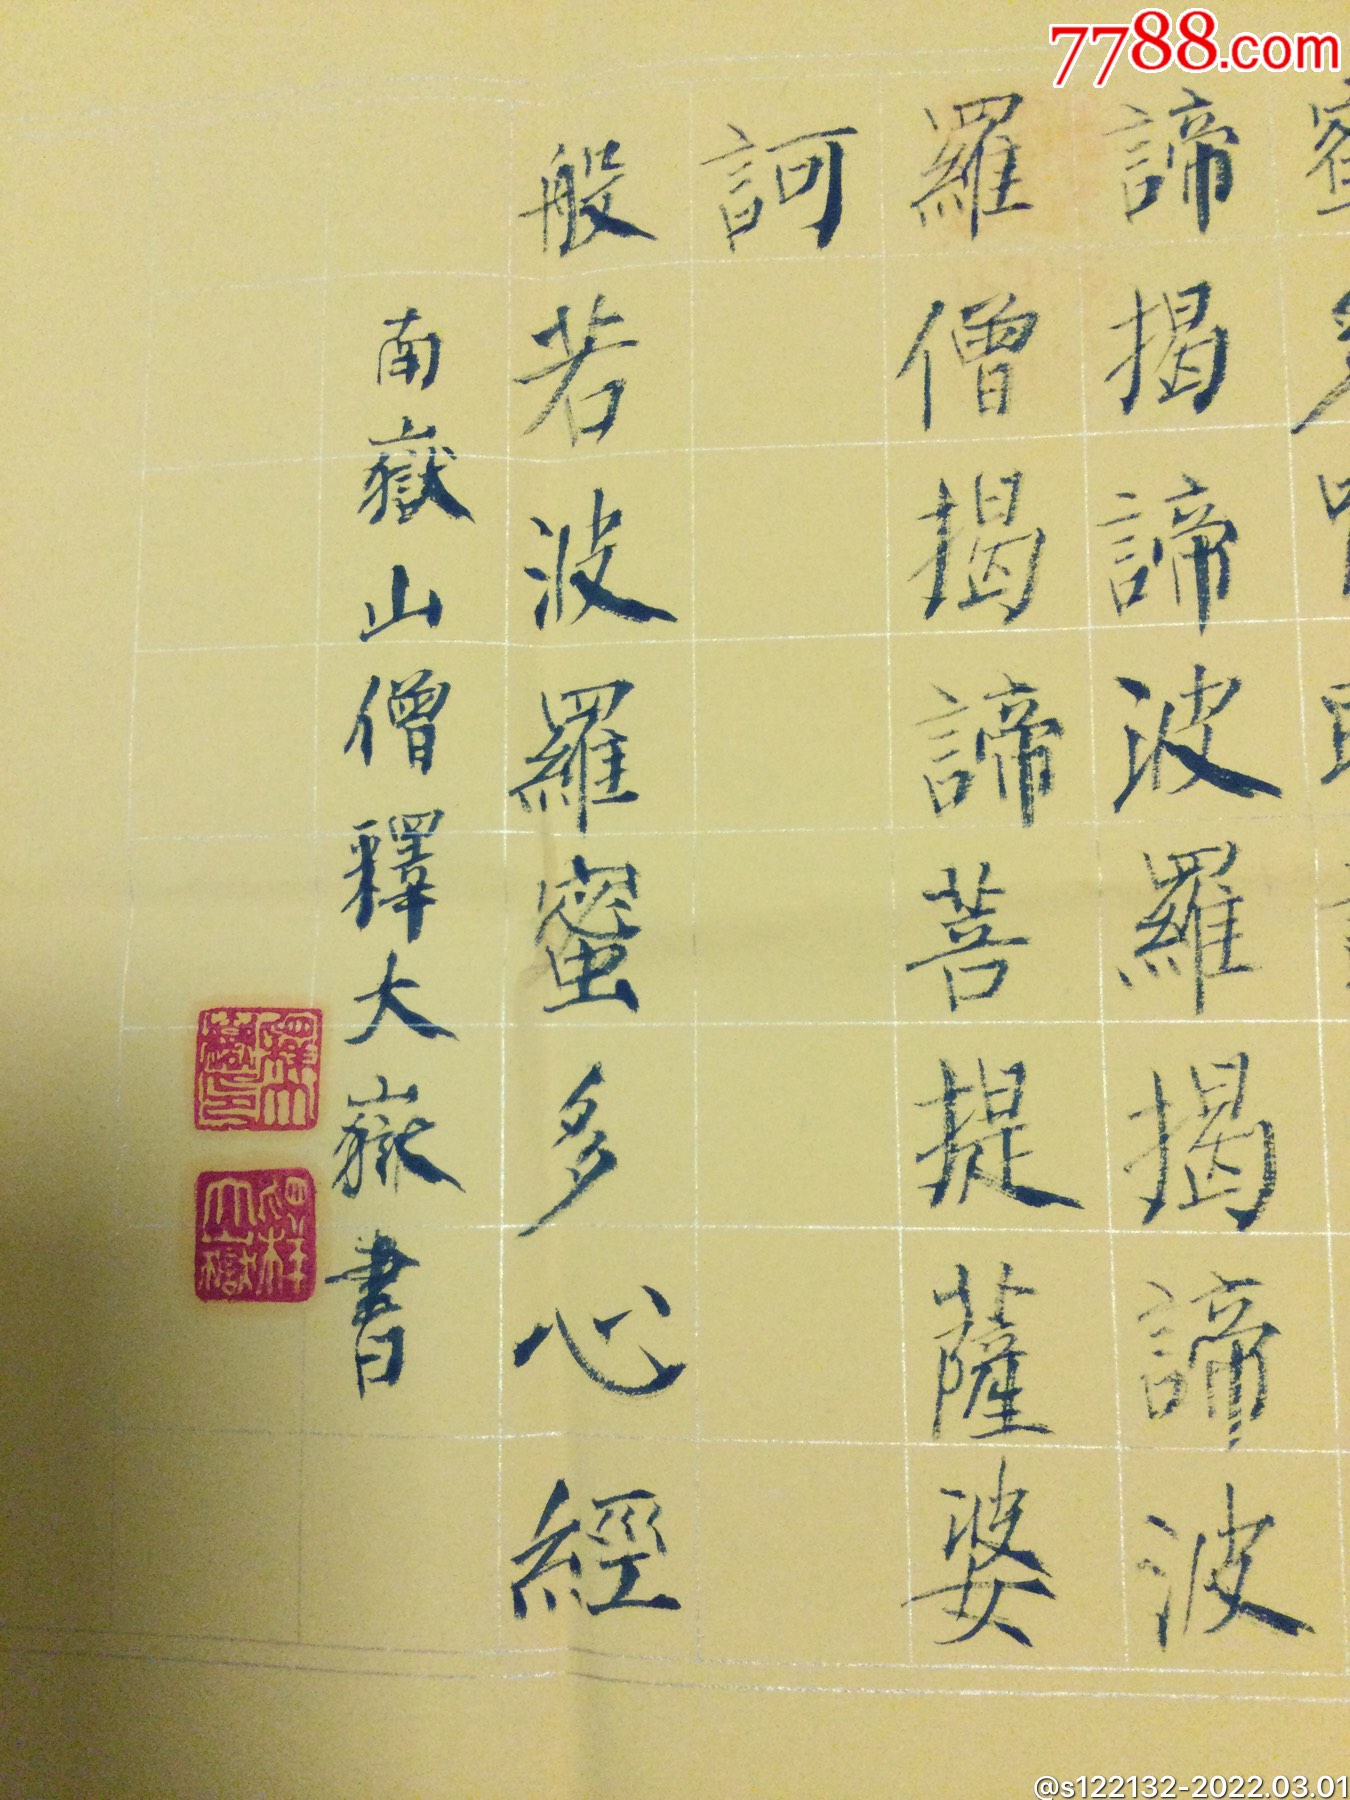 7788.com
諦揭諦波羅揭諦波
羅僧揭諦菩提薩婆
訶
般若波羅蜜多心經
南嶽山僧釋大嶽書
釋大嶽印
@s122132-2022.03.01